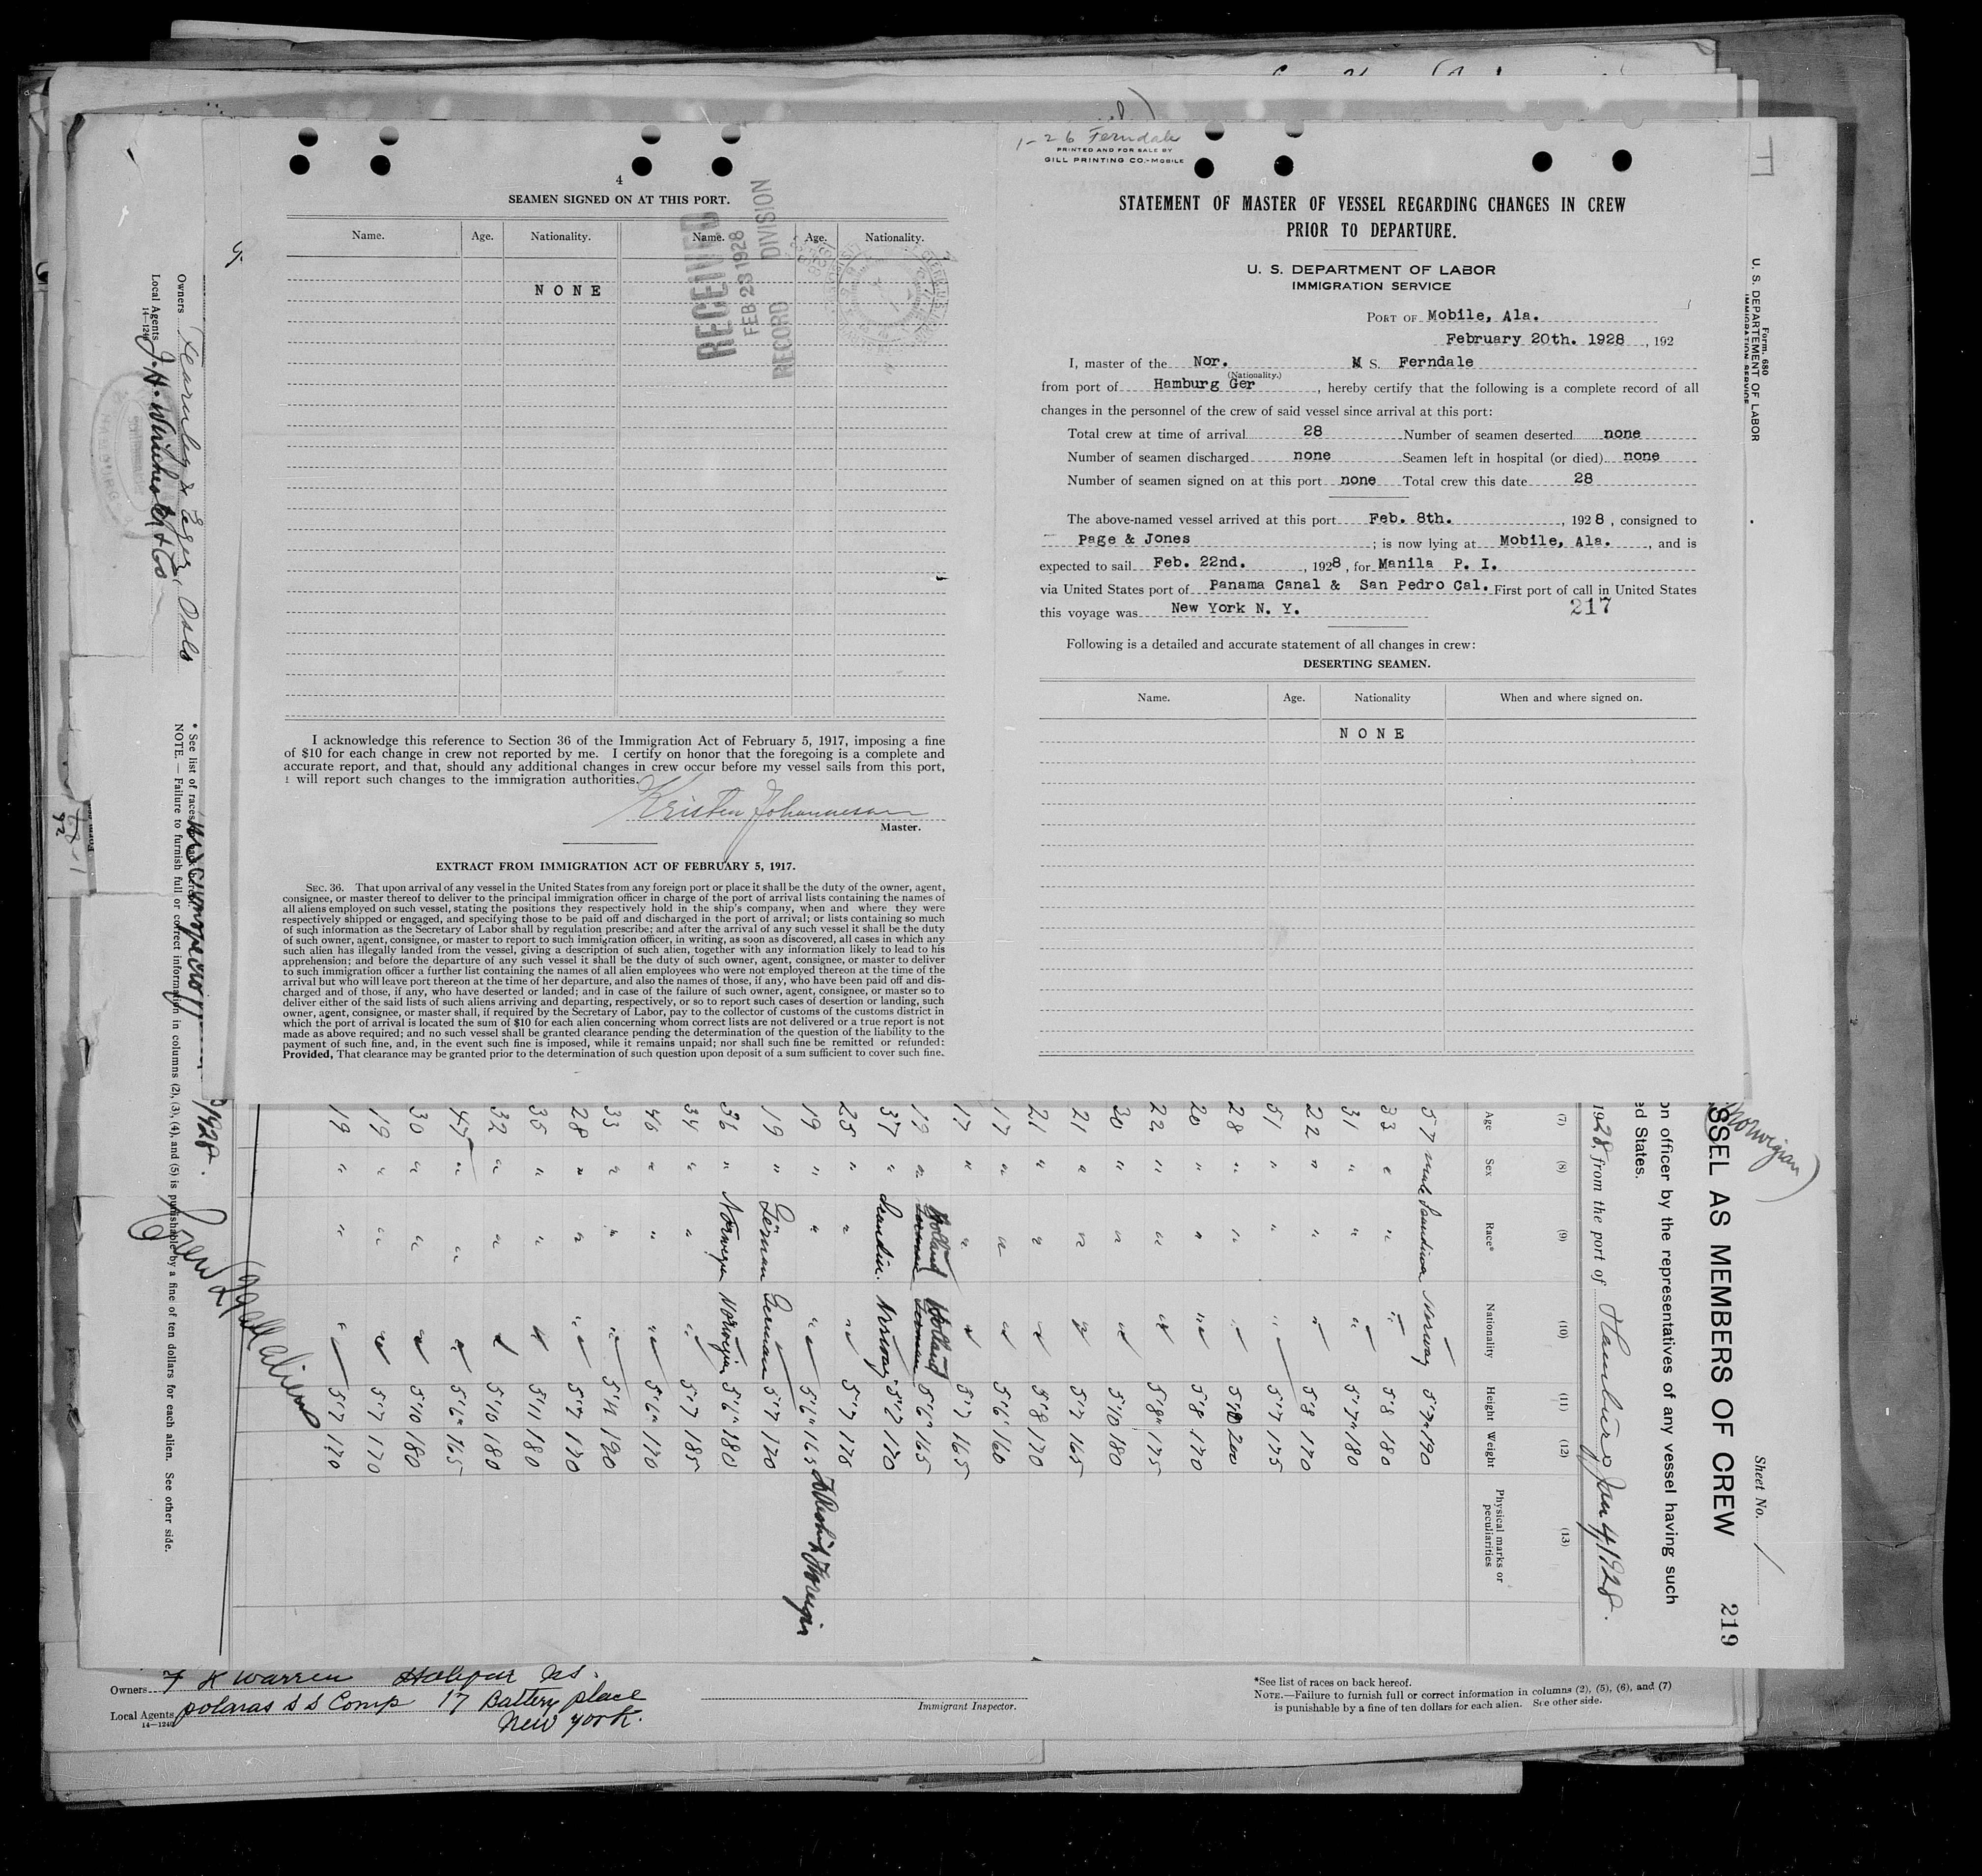 1-26 Ferndale
PRINTED AND FOR SALE BY
GILL PRINTING CO.-MOBILE
4
SEAMEN SIGNED ON AT THIS PORT.
Name. Age. Nationality. Name. Age. Nationality.
NONE
RECEIVED
FEB 23 1928
RECORD DIVISION
I acknowledge this reference to Section 36 of the Immigration Act of February 5, 1917, imposing a fine
of $10 for each change in crew not reported by me. I certify on honor that the foregoing is a complete and
accurate report, and that, should any additional changes in crew occur before my vessel sails from this port,
I will report such changes to the immigration authorities.
Kristen Johannesen
Master.
EXTRACT FROM IMMIGRATION ACT OF FEBRUARY 5, 1917.
SEC. 36. That upon arrival of any vessel in the United States from any foreign port or place it shall be the duty of the owner, agent,
consignee, or master thereof to deliver to the principal immigration officer in charge of the port of arrival lists containing the names of
all aliens employed on such vessel, stating the positions they respectively hold in the ship's company, when and where they were
respectively shipped or engaged, and specifying those to be paid off and discharged in the port of arrival; or lists containing so much
of such information as the Secretary of Labor shall by regulation prescribe; and after the arrival of any such vessel it shall be the duty
of such owner, agent, consignee, or master to report to such immigration officer, in writing, as soon as discovered, all cases in which any
such alien has illegally landed from the vessel, giving a description of such alien, together with any information likely to lead to his
apprehension; and before the departure of any such vessel it shall be the duty of such owner, agent, consignee, or master to deliver
to such immigration officer a further list containing the names of all alien employees who were not employed thereon at the time of the
arrival but who will leave port thereon at the time of her departure, and also the names of those, if any, who have been paid off and dis-
charged and of those, if any, who have deserted or landed; and in case of the failure of such owner, agent, consignee, or master so to
deliver either of the said lists of such aliens arriving and departing, respectively, or so to report such cases of desertion or landing, such
owner, agent, consignee, or master shall, if required by the Secretary of Labor, pay to the collector of customs of the customs district in
which the port of arrival is located the sum of $10 for each alien concerning whom correct lists are not delivered or a true report is not
made as above required; and no such vessel shall be granted clearance pending the determination of the question of the liability to the
payment of such fine, and, in the event such fine is imposed, while it remains unpaid; nor shall such fine be remitted or refunded:
Provided, That clearance may be granted prior to the determination of such question upon deposit of a sum sufficient to cover such fine.
STATEMENT OF MASTER OF VESSEL REGARDING CHANGES IN CREW
PRIOR TO DEPARTURE.
U. S. DEPARTMENT OF LABOR
IMMIGRATION SERVICE
PORT OF Mobile, Ala.
February 20th. 1928, 192
I, master of the Nor. M S. Ferndale
(Nationality.)
from port of Hamburg Ger, hereby certify that the following is a complete record of all
changes in the personnel of the crew of said vessel since arrival at this port:
Total crew at time of arrival 28 Number of seamen deserted none
Number of seamen discharged none Seamen left in hospital (or died) none
Number of seamen signed on at this port none Total crew this date 28
The above-named vessel arrived at this port Feb. 8th., 1928, consigned to
Page & Jones; is now lying at Mobile, Ala., and is
expected to sail Feb. 22nd., 1928, for Manila P. I.
via United States port of Panama Canal & San Pedro Cal. First port of call in United States
this voyage was New York N. Y. 217
Following is a detailed and accurate statement of all changes in crew:
DESERTING SEAMEN.
Name. Age. Nationality When and where signed on.
NONE
Form 680
U. S. DEPARTMENT OF LABOR
IMMIGRATION SERVICE
Sheet No. 1
(Norwegian)
SSEL AS MEMBERS OF CREW 219
on officer by the representatives of any vessel having such
ed States.
1928, from the port of Hamburg Jan 4, 1928.
(7) (8) (9) (10) (11) (12) (13)
Age Sex Race* Nationality Height Weight Physical marks or peculiarities
57 male Scandinav Norway 5'7" 190
33 " " " 5'8 180
31 " " " 5'7" 180
22 " " " 5'8 170
51 " " " 5'7 175
28 " " " 5'10 200
20 " " " 5'8 170
22 " " " 5'8" 175
30 " " " 5'10 180
21 " " " 5'7 165
21 " " " 5'8 170
17 " " " 5'6" 160
17 " " " 5'7 165
19 " Holland Holland 5'6" 165
37 " Scandin. Norway 5'7 170
25 " " " 5'7 175
19 " " " 5'6" 165
19 " German German 5'7 170
36 " Norwegian Norwegian 5'6" 180
34 " " " 5'7 185
46 " " " 5'6" 170
33 " " " 5'11 190
28 " " " 5'7 170
35 " " " 5'11 180
32 " " " 5'10 180
45 " " " 5'6" 165
30 " " " 5'10 180
19 " " " 5'7 170
19 " " " 5'7 170
(29 all aliens)
Crew 29
1928.
* See list of races
NOTE.—Failure to furnish full or correct information in columns (2), (3), (4), and (5) is punishable by a fine of ten dollars for each alien. See other side.
Owners Fearnley & Eger, Oslo
Local Agents J. H. Winchester & Co
14-1240
Owners F K Warren Halifax N.S.
Local Agents polaras S S Comp 17 Battery place
14-1240
New York.
Immigrant Inspector.
*See list of races on back hereof.
NOTE.—Failure to furnish full or correct information in columns (2), (5), (6), and (7)
is punishable by a fine of ten dollars for each alien. See other side.